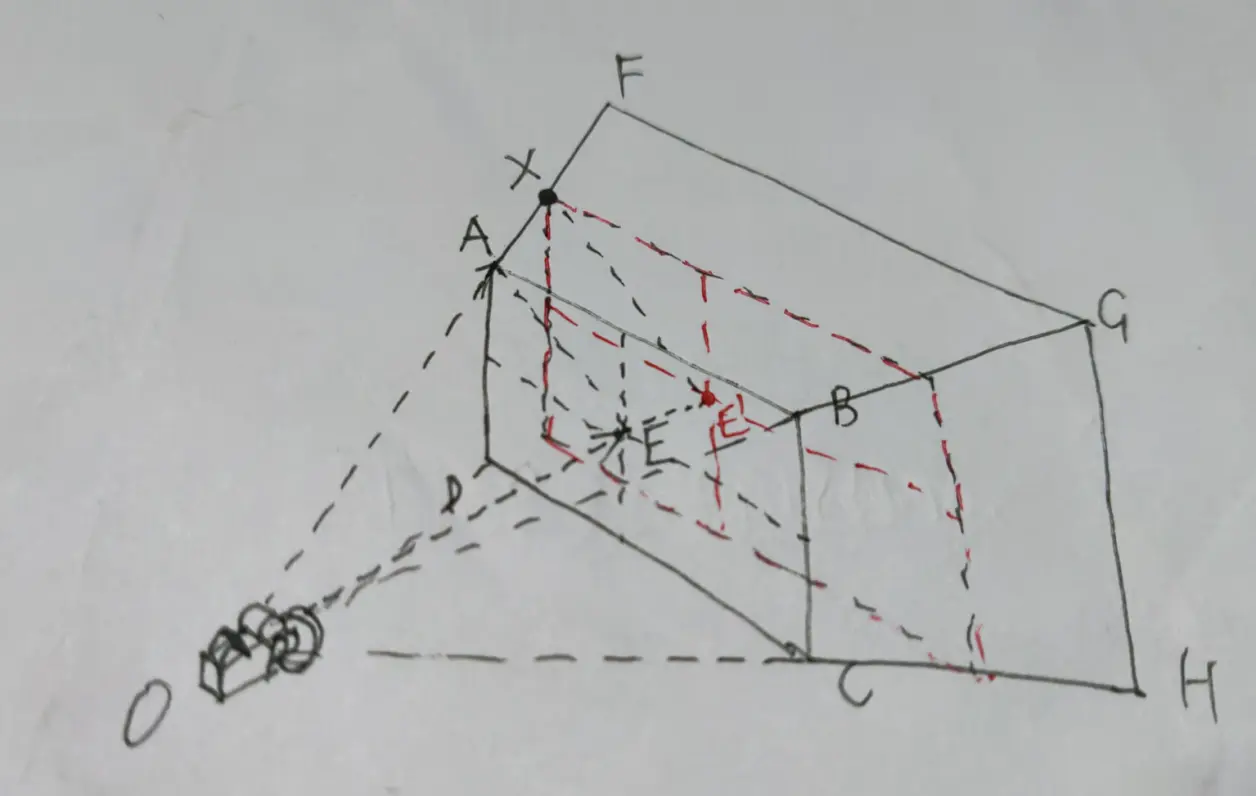 F
X
A
G
B
E'
E
D
C
H
O